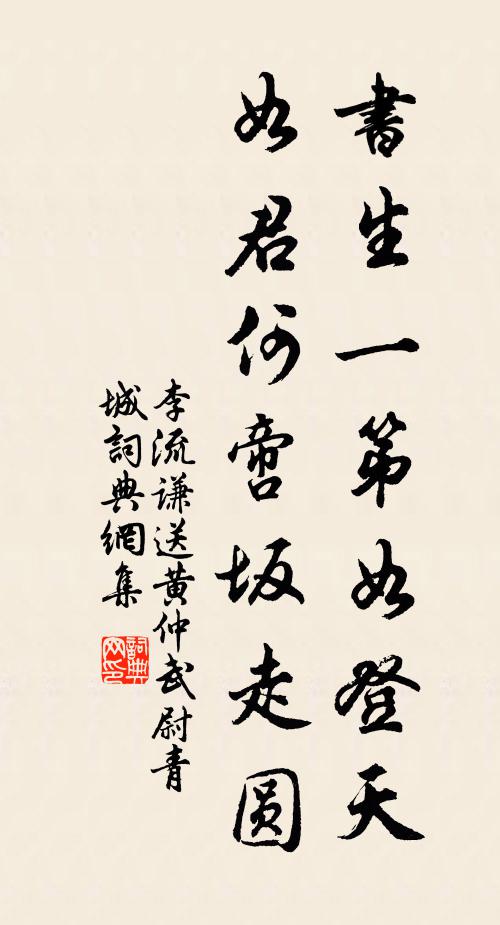 書生一第如登天
如君何啻坂走圓
李流謙送黃仲武尉青
城詞典網集
詞典網印